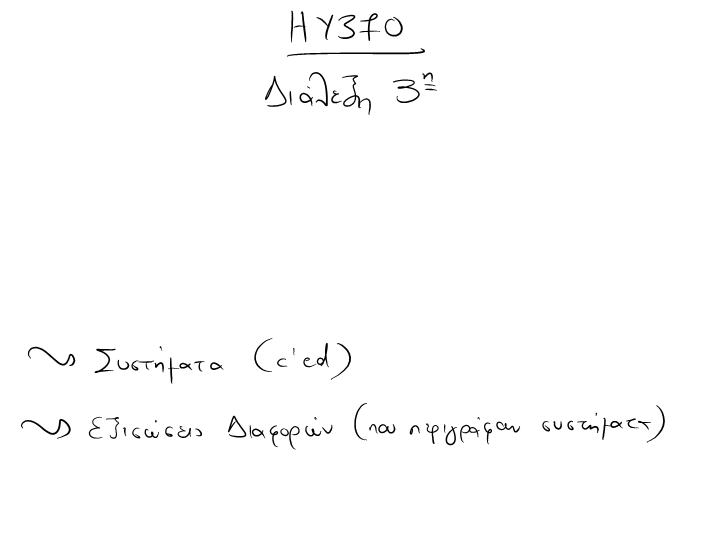 ΗΥ370
Διάλεξη 3η
Συστήματα (c'ed)
Εξισώσεις Διαφορών (που περιγράφουν συστήματα)